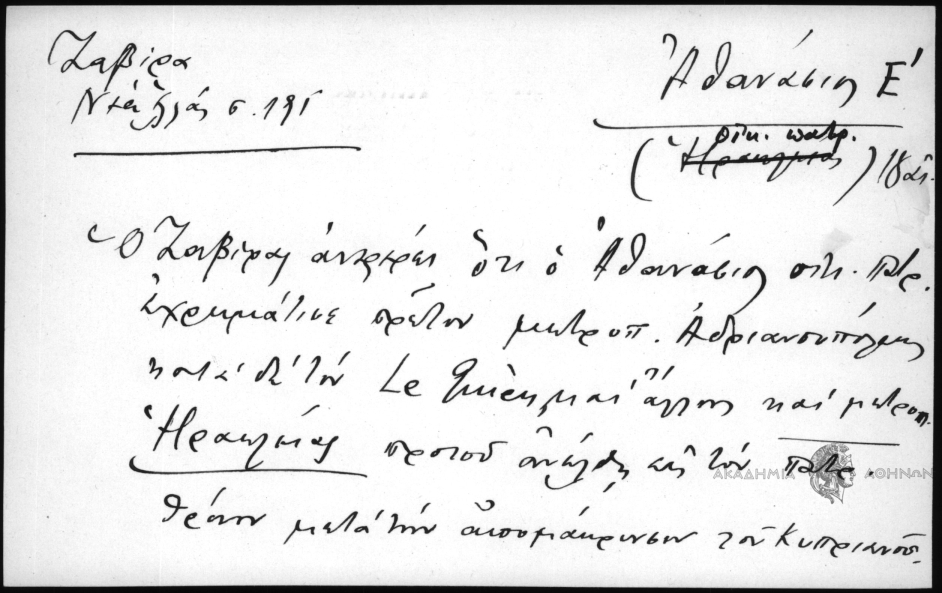 Ζαβίρα
Νέα Ἑλλάς σ. 191
Ἀθανάσιος Ε'
οἰκ. πατρ.
(Ἡρακλείας) 18 αἰ.
Ὁ Ζαβίρας ἀναφέρει ὅτι ὁ Ἀθανάσιος οἰκ. πατρ.
ἐχρημάτισε πρῶτον μητροπ. Ἀδριανουπόλεως
κατὰ δὲ τόν Le Quien καί ἄλλους καί μητροπ.
Ἡρακλείας προτοῦ ἀνέλθῃ εἰς τόν πατρ.
θρόνον μετά τήν ἀπομάκρυνσιν τοῦ Κυπριανοῦ
ΑΚΑΔΗΜΙΑ ΑΘΗΝΩΝ